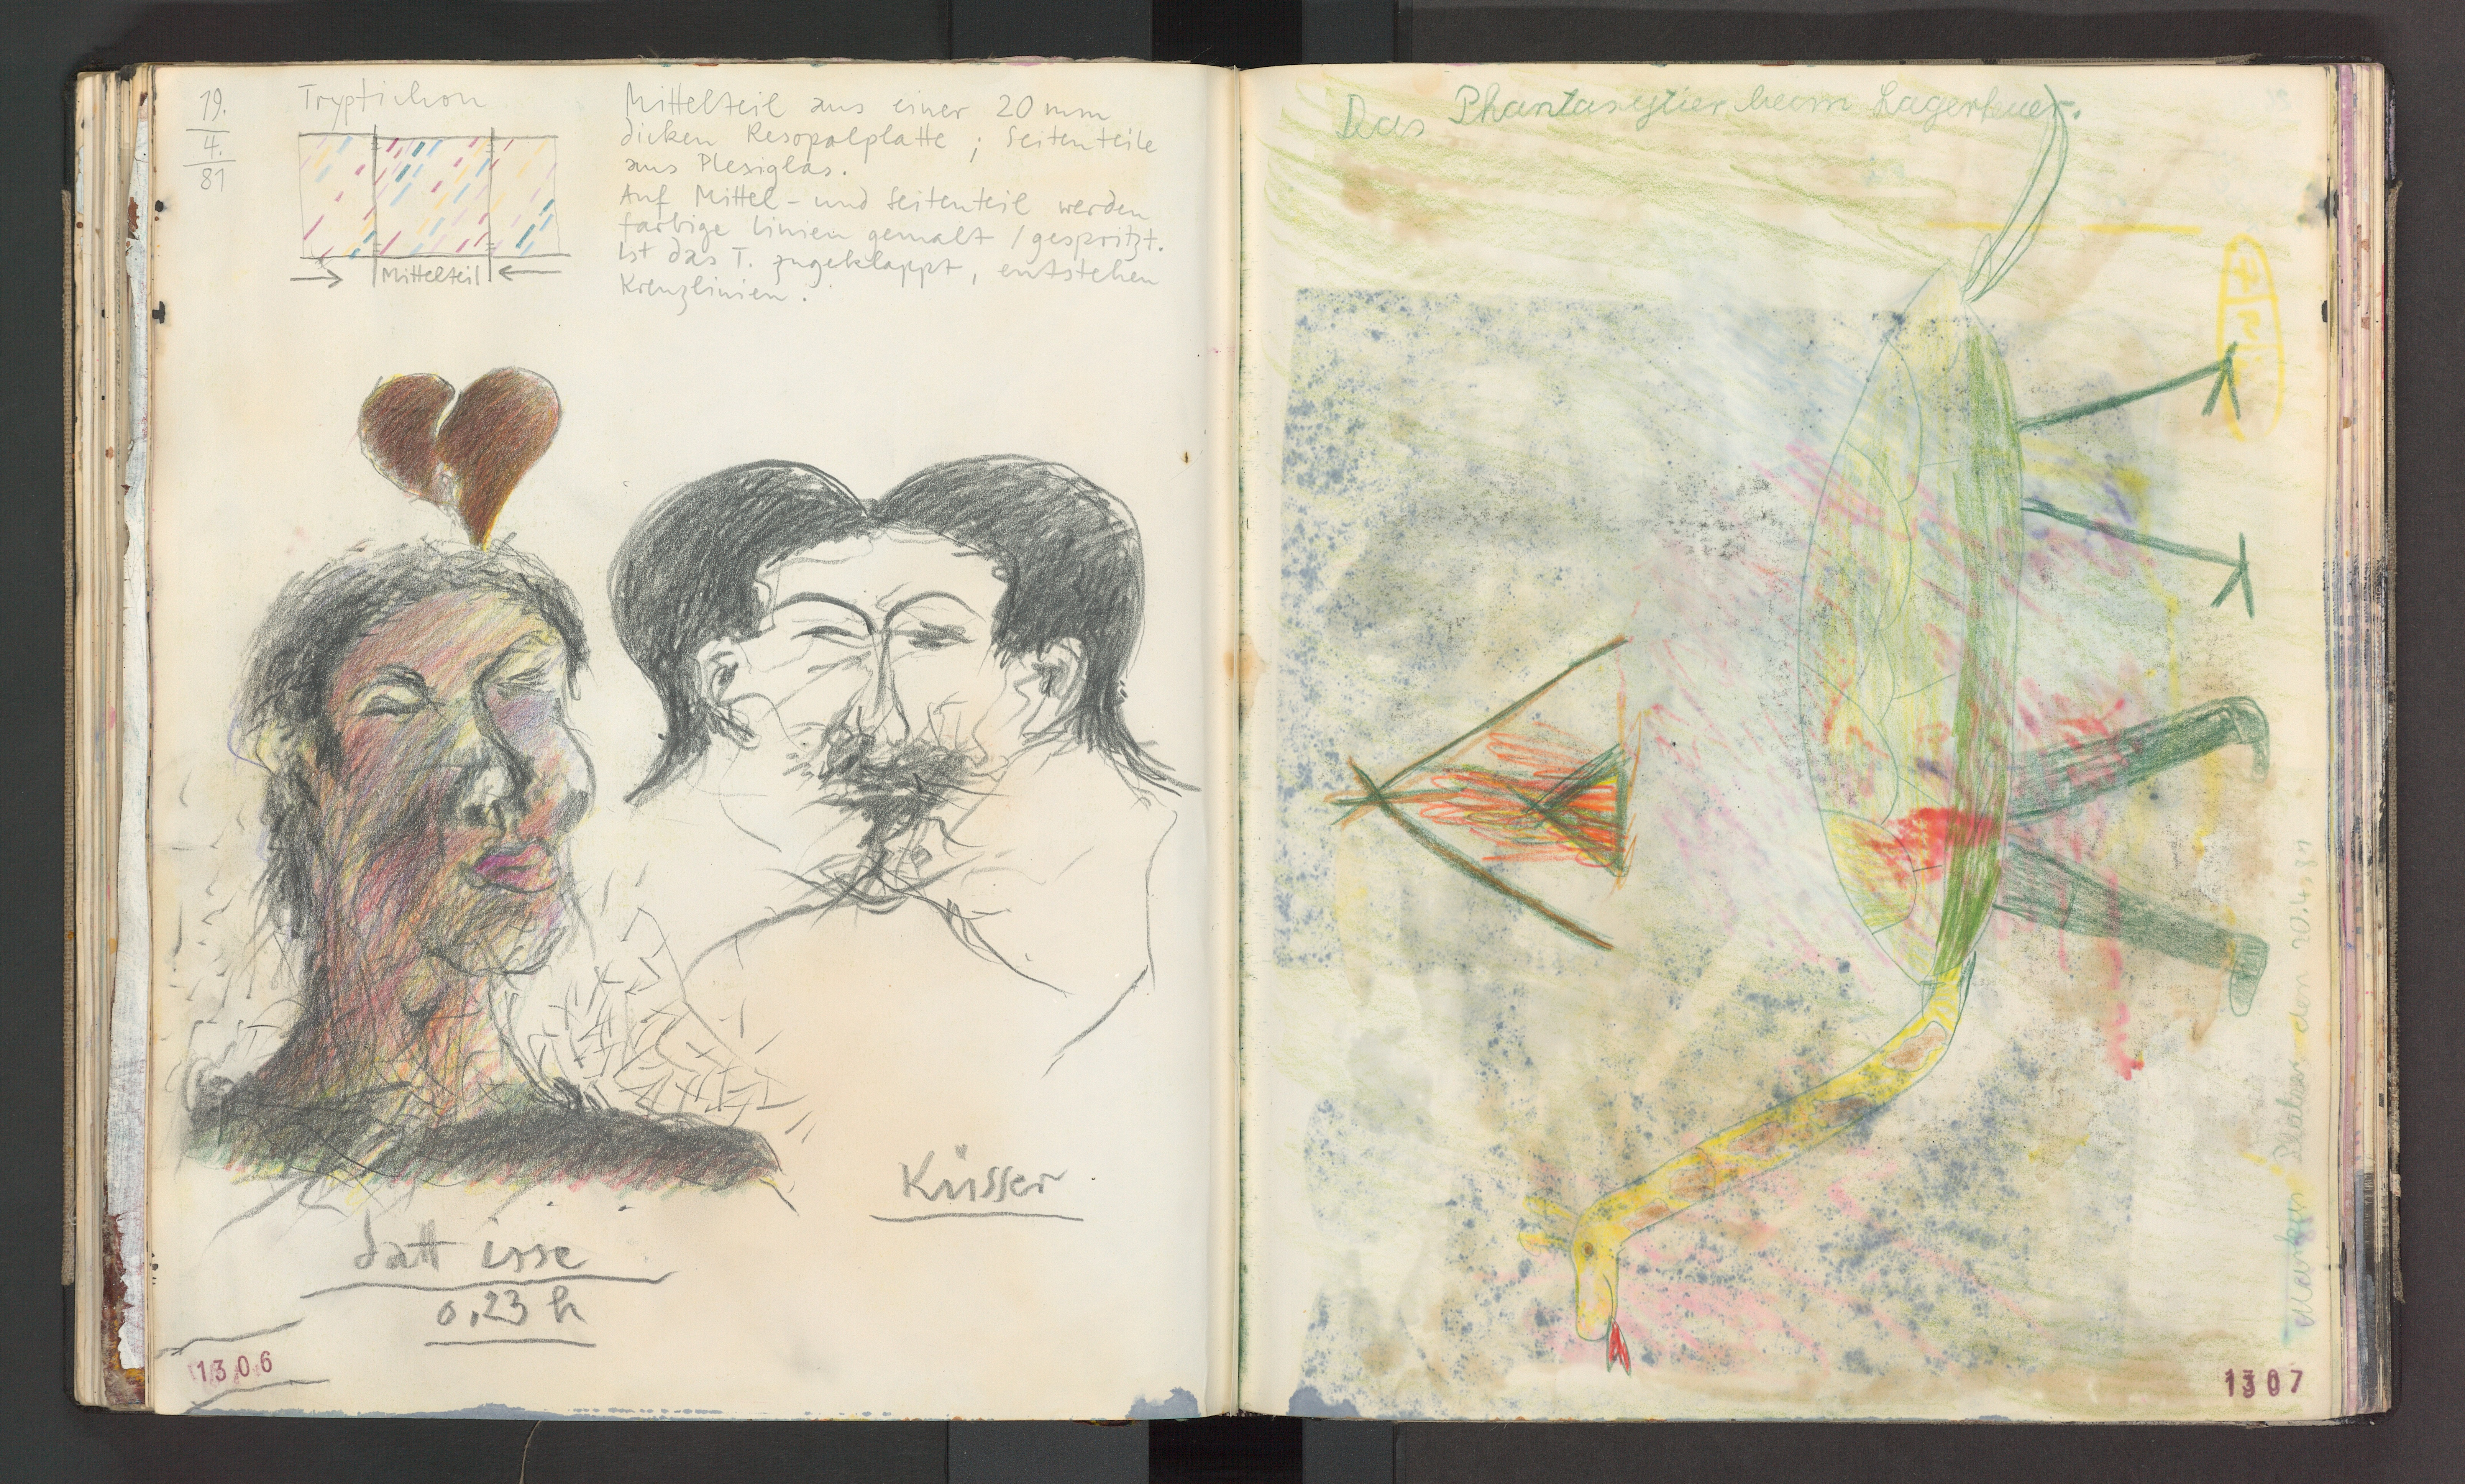 19.
4.
81
Tryptichon
Mittelteil
Mittelteil aus einer 20 mm
dicken Resopalplatte ; Seitenteile
aus Plexiglas.
Auf Mittel- und Seitenteil werden
farbige Linien gemalt / gespritzt.
Ist das T. zugeklappt, entstehen
Kreuzlinien.
Küsser
datt isse
0.23 h
1306
Das Phantasytier beom Lagerfeuer.
Markus den 20.4.81
1307